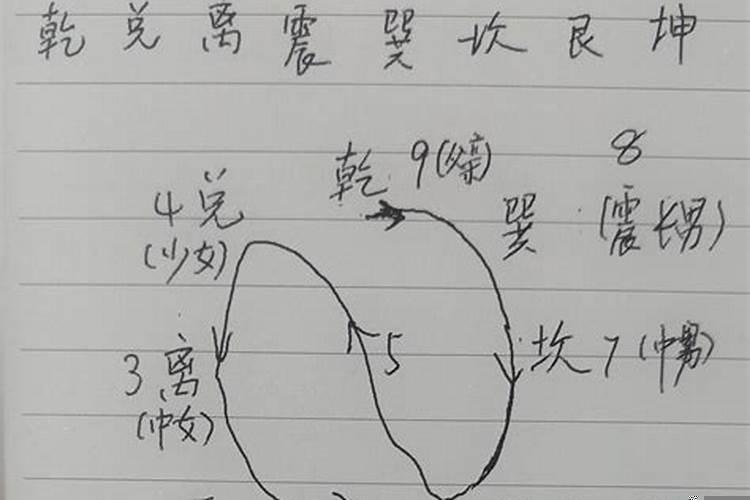 乾 兑 离 震 巽 坎 艮 坤
乾 9(父亲) 8
4 兑 巽 (震长男)
(少女)
5 坎 7 (中男)
3 离
(中女)